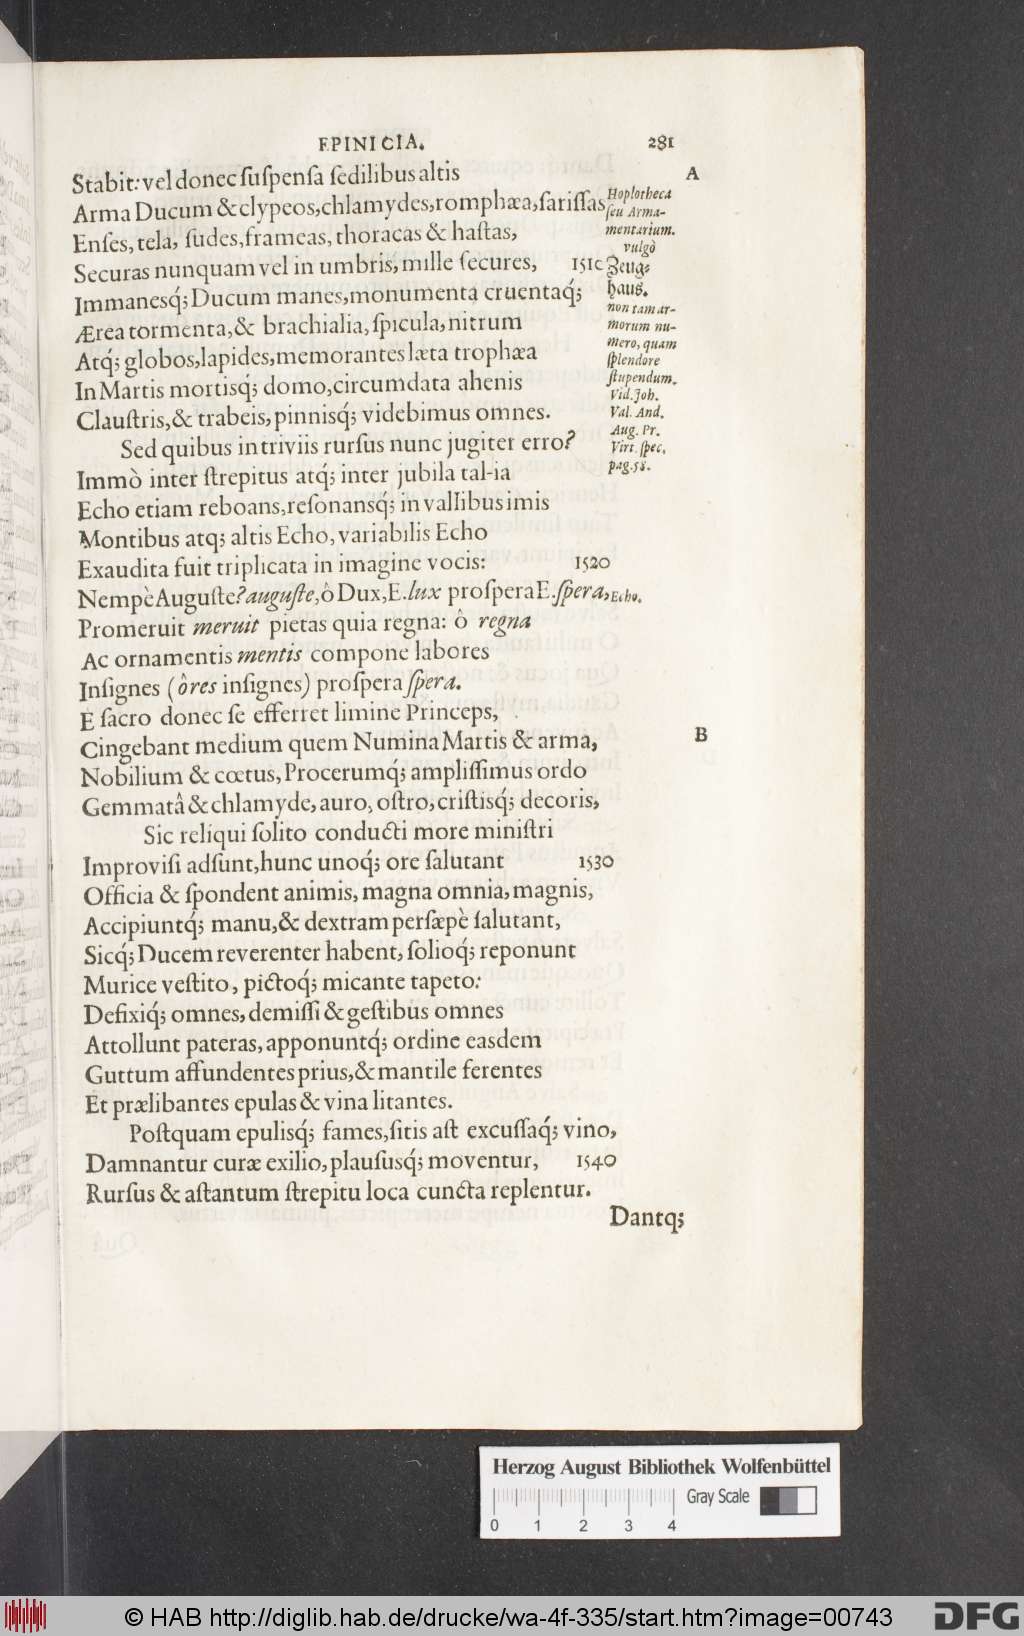 EPINICIA. 281
Stabit: vel donec ſuſpenſa ſedilibus altis A
Arma Ducum & clypeos, chlamydes, romphæa, ſariſſas
Enſes, tela, ſudes, frameas, thoracas & haſtas,
Securas nunquam vel in umbris, mille ſecures, 1510
Immanesq́; Ducum manes, monumenta cruentaq́;
Ærea tormenta, & brachialia, ſpicula, nitrum
Atq́; globos, lapides, memorantes læta trophæa
In Martis mortisq́; domo, circumdata ahenis
Clauſtris, & trabeis, pinnisq́; videbimus omnes.
Hoplotheca
ſeu Arma-
mentarium.
vulgò
Zeug-
haus.
non tam ar-
morum nu-
mero, quam
ſplendore
ſtupendum.
Vid. Joh.
Val. And.
Aug. Pr.
Virt. ſpec.
pag. 58.
Sed quibus in triviis rurſus nunc jugiter erro?
Immò inter ſtrepitus atq́; inter jubila tal-ia
Echo etiam reboans, reſonansq́; in vallibus imis
Montibus atq; altis Echo, variabilis Echo
Exaudita fuit triplicata in imagine vocis: 1520
Nempè Auguſte? auguſte, ô Dux, E. lux proſpera E. ſpera, Echo.
Promeruit meruit pietas quia regna: ô regna
Ac ornamentis mentis compone labores
Inſignes (ôres inſignes) proſpera ſpera.
E ſacro donec ſe efferret limine Princeps,
Cingebant medium quem Numina Martis & arma, B
Nobilium & cœtus, Procerumq́; ampliſſimus ordo
Gemmatâ & chlamyde, auro, oſtro, criſtisq́; decoris,
Sic reliqui ſolito conducti more miniſtri
Improviſi adſunt, hunc unoq́; ore ſalutant 1530
Officia & ſpondent animis, magna omnia, magnis,
Accipiuntq́; manu, & dextram perſæpè ſalutant,
Sicq́; Ducem reverenter habent, ſolioq́; reponunt
Murice veſtito, pictoq́; micante tapeto:
Defixiq́; omnes, demiſſi & geſtibus omnes
Attollunt pateras, apponuntq́; ordine easdem
Guttum affundentes prius, & mantile ferentes
Et prælibantes epulas & vina litantes.
Poſtquam epulisq́; fames, ſitis aſt excuſſaq́; vino,
Damnantur curæ exilio, plauſusq́; moventur, 1540
Rurſus & aſtantum ſtrepitu loca cuncta replentur.
Dantq;
Herzog August Bibliothek Wolfenbüttel
Gray Scale
0 1 2 3 4
© HAB http://diglib.hab.de/drucke/wa-4f-335/start.htm?image=00743
DFG